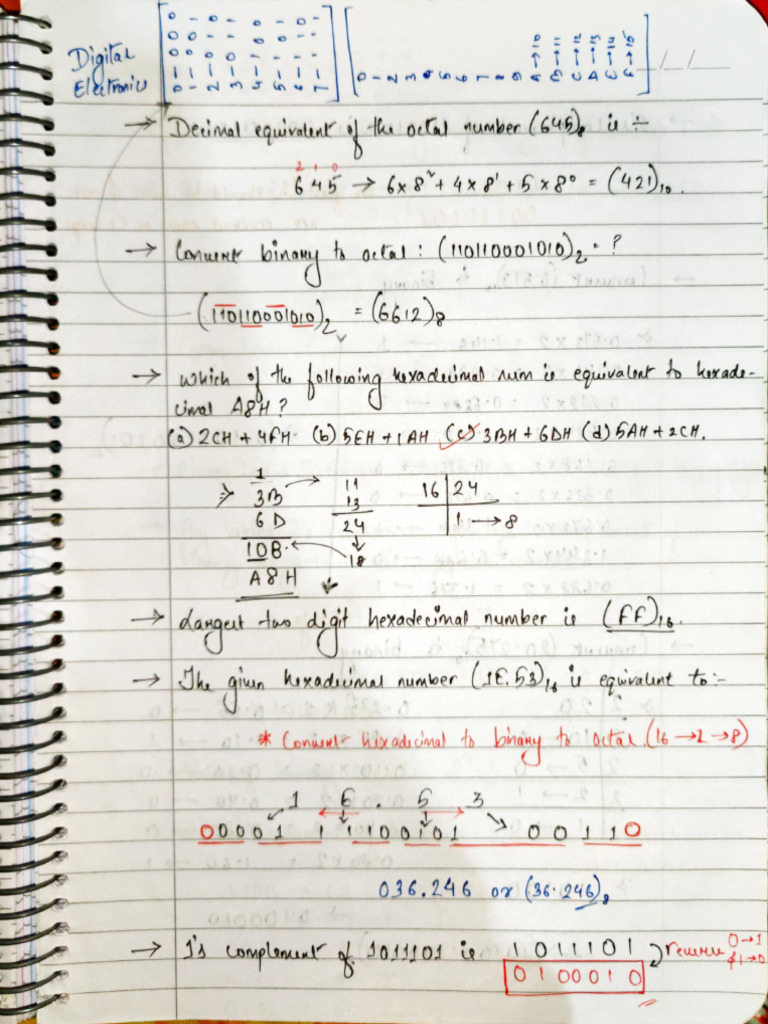 Digital
Electronics
0 0 0 0 → 0
0 0 1 → 1
0 1 0 → 2
0 1 1 → 3
1 0 0 → 4
1 0 1 → 5
1 1 0 → 6
1 1 1 → 7
0 1 2 3 4 5 6 7 8 9 A→10 B→11 C→12 D→13 E→14 F→15
→ Decimal equivalent of the octal number (645)8 is ÷
2 1 0
645 → 6×8² + 4×8¹ + 5×8⁰ = (421)10.
→ Convert binary to octal : (110110001010)2 = ?
(110110001010)2 = (6612)8
→ which of the following hexadecimal num is equivalent to hexade-
cimal A8H ?
(a) 2CH + 4FH (b) 5EH + 1AH (c) 3BH + 6DH (d) 5AH + 2CH.
1
3B 11 16 24
6D 13 1 → 8
24
10 8 18
A8H
→ Largest two digit hexadecimal number is (FF)16.
→ The given hexadecimal number (1E.53)16 is equivalent to :-
* Convert hixadecimal to binary to octal (16 → 2 → 8)
1 E . 5 3
00001 1 1 1 0 0 1 0 1 0 0 1 1 0
036.246 or (36.246)8
→ 1's complement of 1011101 is 1011101 reverse 0→1
0100010 & 1→0